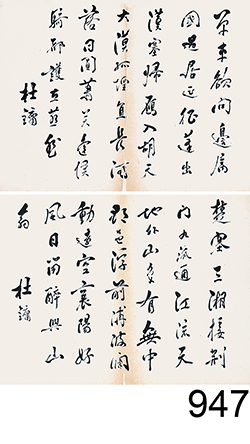 單車欲問邊屬
國過居延征蓬出
漢塞歸雁入胡天
大漠孤煙直長河
落日圓蕭關逢候
騎都護在燕然
杜鏞
楚塞三湘接荊
門九派通江流天
地外山色有無中
郡邑浮前浦波瀾
動遠空襄陽好
風日留醉與山
翁
杜鏞
947